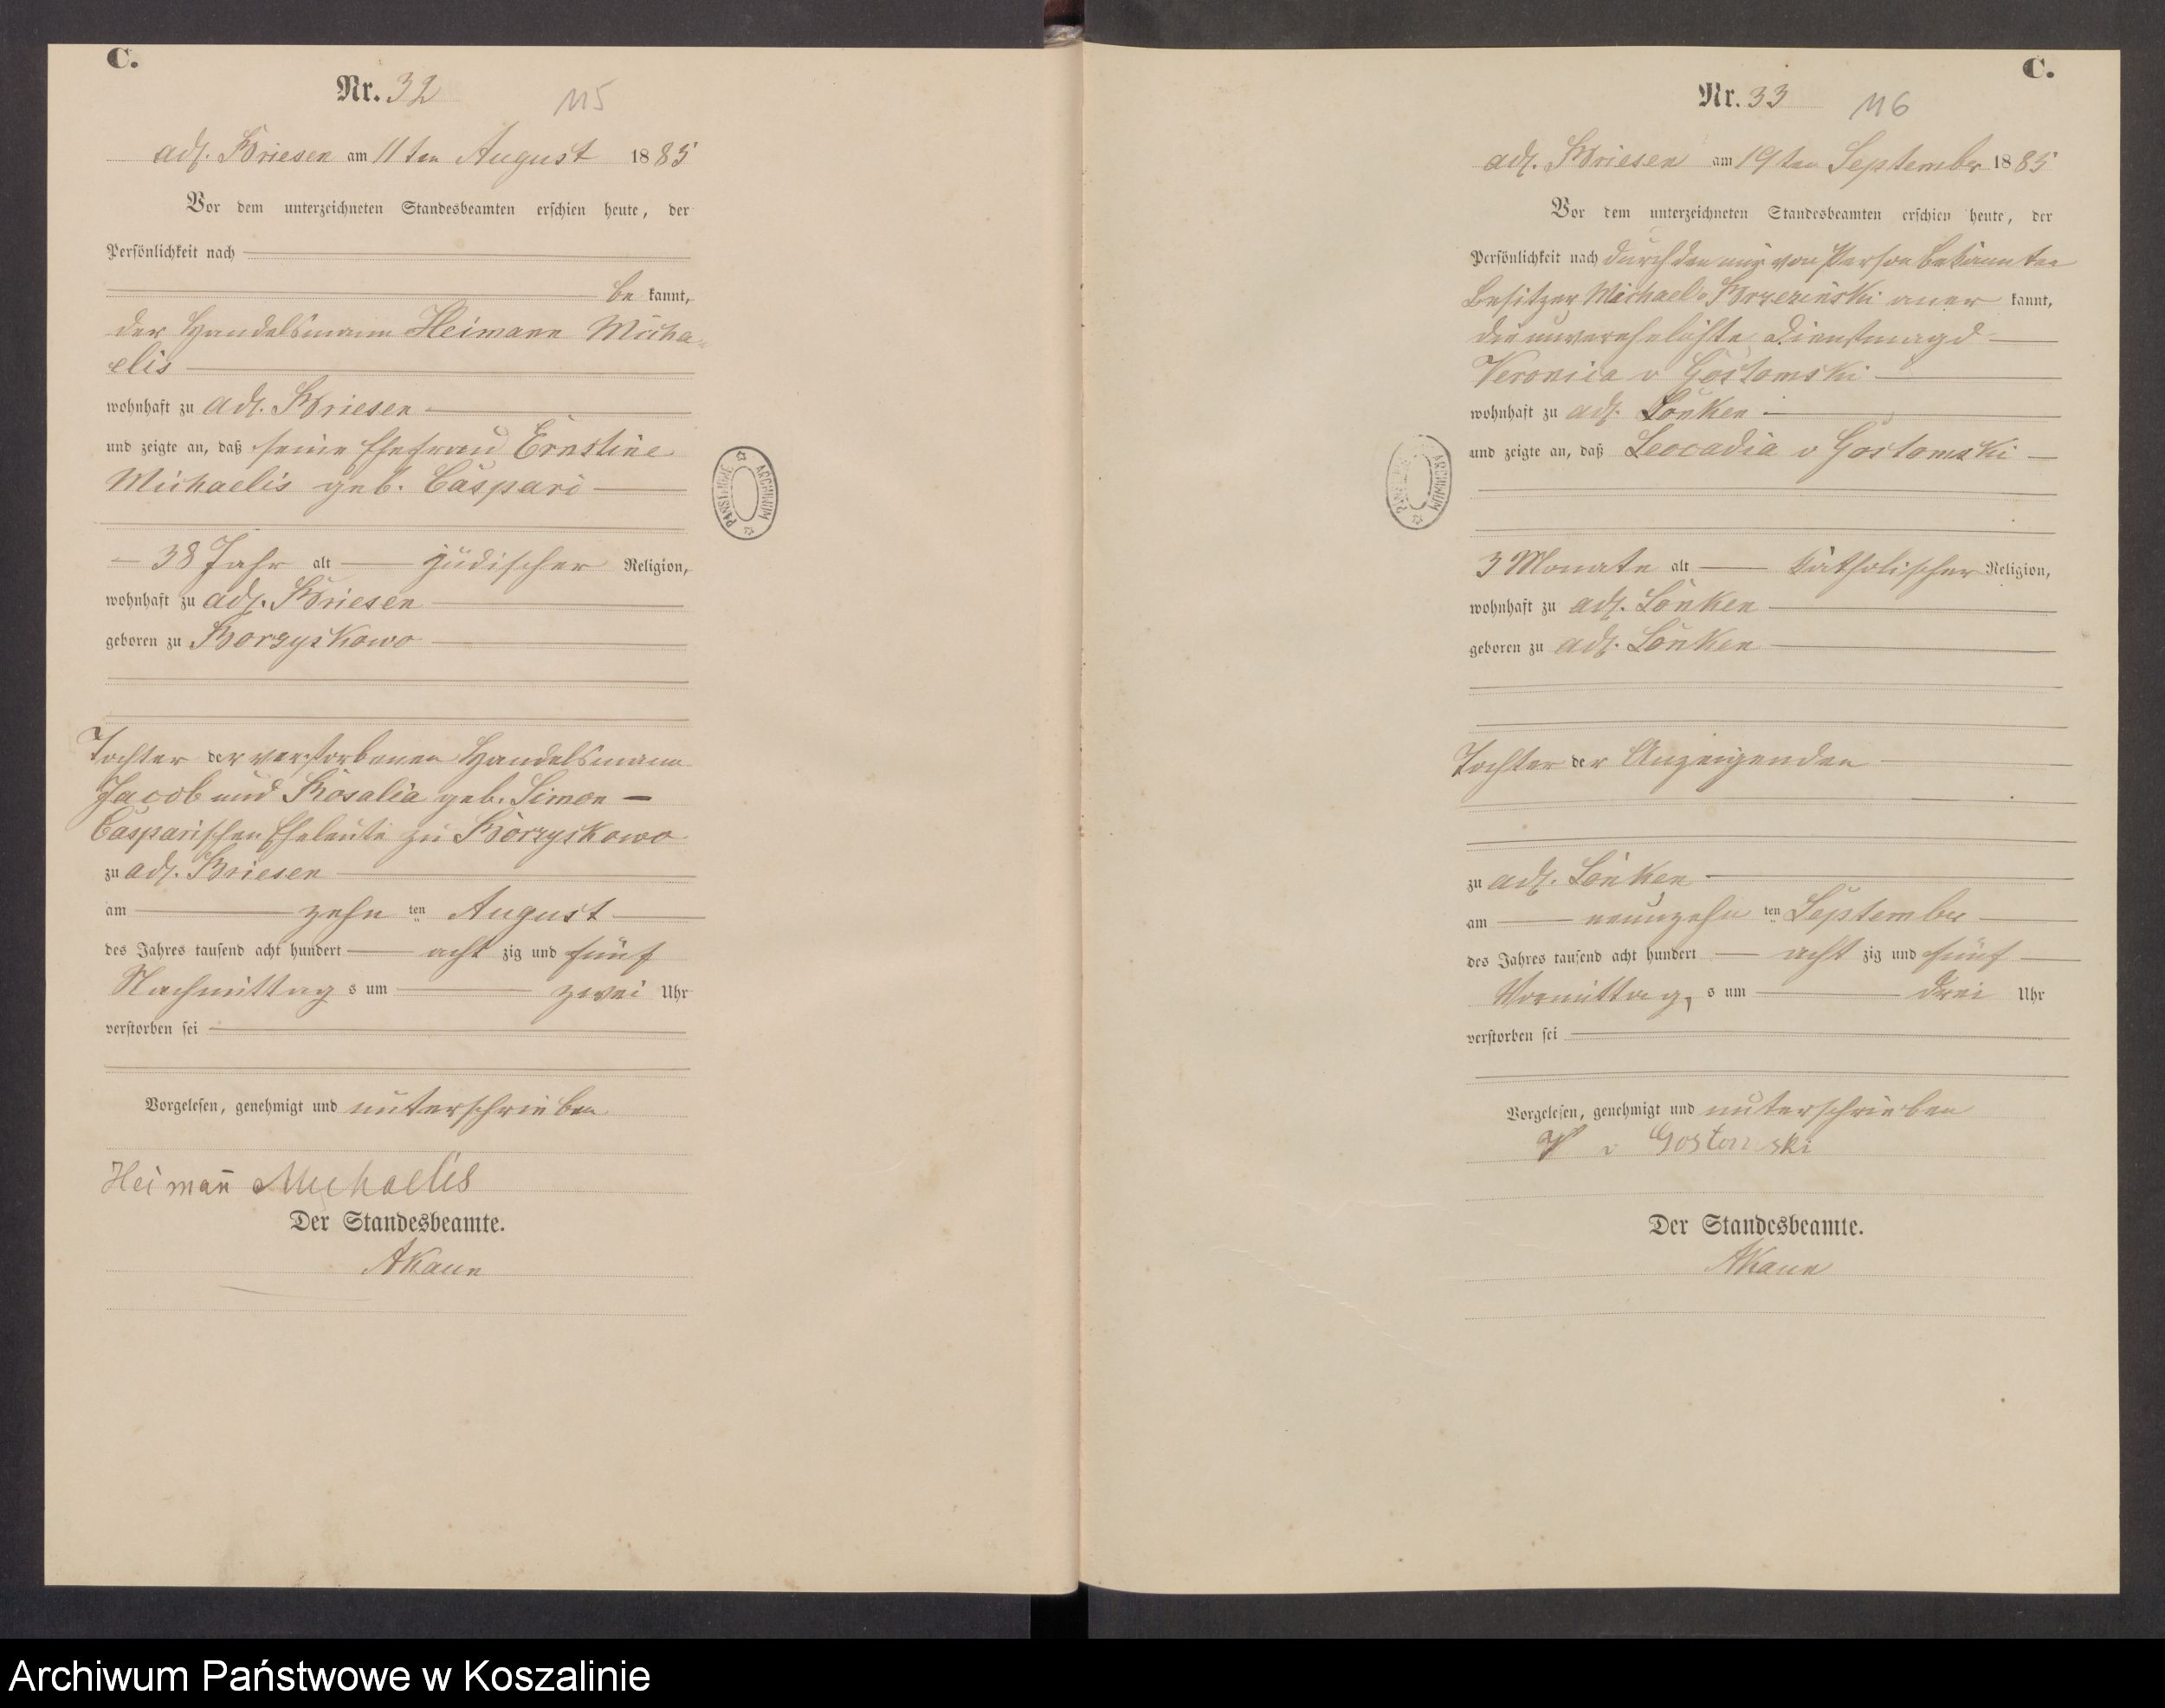 C.
Nr. 32
115
adl. Briesen am 11ten August 1885
Vor dem unterzeichneten Standesbeamten erschien heute, der
Persönlichkeit nach
be kannt,
der Handelsmann Heimann Micha-
elis
wohnhaft zu adl. Briesen
und zeigte an, daß seine Ehefrau Ernstine
Michaelis geb. Caspari
38 Jahr alt jüdischer Religion,
wohnhaft zu adl. Briesen
geboren zu Borzyskowo
Tochter der verstorbenen Handelsmann
Jacob und Rosalia geb. Simon
Casparischen Eheleute zu Borzyskowo
zu adl. Briesen
am zehn ten August
des Jahres tausend acht hundert acht zig und fünf
Nachmittag s um zwei Uhr
verstorben sei
Vorgelesen, genehmigt und unterschrieben
Heiman̄ Michaelis
Der Standesbeamte.
PAŃSTWOWE ARCHIWUM
C.
Nr. 33
116
adl. Briesen am 19ten September 1885
Vor dem unterzeichneten Standesbeamten erschien heute, der
Persönlichkeit nach durch den mir von Person bekannten
Besitzer Michael v Brzezinski aner kannt,
die unverehelichte Dienstmagd
Veronica v Gostomski
wohnhaft zu adl. Lonken
und zeigte an, daß Leocadia v Gostomski
3 Monate alt katholischer Religion,
wohnhaft zu adl. Lonken
geboren zu adl. Lonken
Tochter der Anzeigenden
zu adl. Lonken
am neunzehn ten September
des Jahres tausend acht hundert acht zig und fünf
Vormittag s um drei Uhr
verstorben sei
Vorgelesen, genehmigt und unterschrieben
V v Gostomski
Der Standesbeamte.
ARCHIWUM
Archiwum Państwowe w Koszalinie